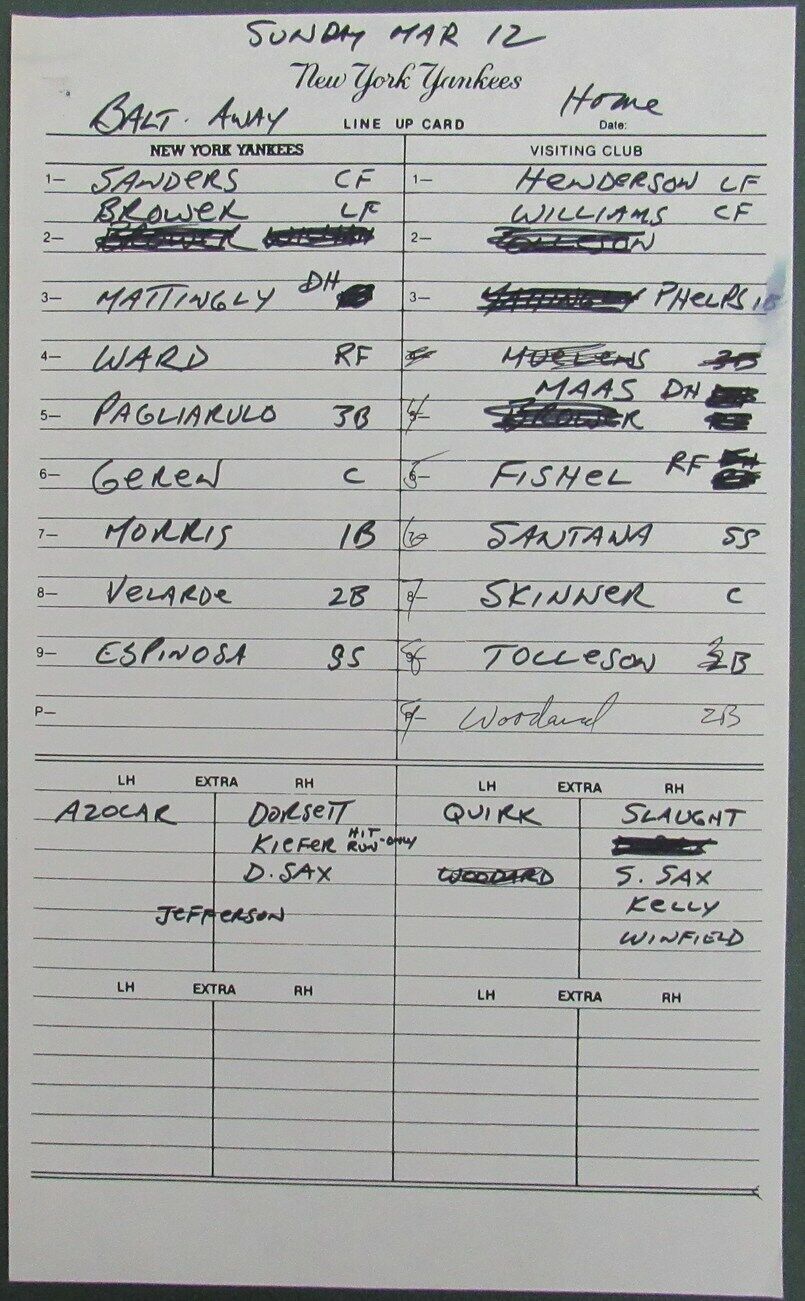 SUNDAY MAR 12
New York Yankees
BALT. AWAY LINE UP CARD Home
Date:
NEW YORK YANKEES VISITING CLUB
1— SANDERS CF 1— HENDERSON LF
BROWER LF WILLIAMS CF
2— BROWER 2— TOLLESON
3— MATTINGLY DH 3— MATTINGLY PHELPS 1B
4— WARD RF MUELENS 3B
MAAS DH
5— PAGLIARULO 3B 4— BROWER
6— GEREN C 5— FISHEL RF
7— MORRIS 1B 6 SANTANA SS
8— VELARDE 2B 7— SKINNER C
9— ESPINOSA SS 8 TOLLESON 3B
P— 9— Woodard 2B
LH EXTRA RH LH EXTRA RH
AZOCAR DORSETT QUIRK SLAUGHT
KIEFER HIT RUN-ONLY
D. SAX WOODARD S. SAX
JEFFERSON KELLY
WINFIELD
LH EXTRA RH LH EXTRA RH